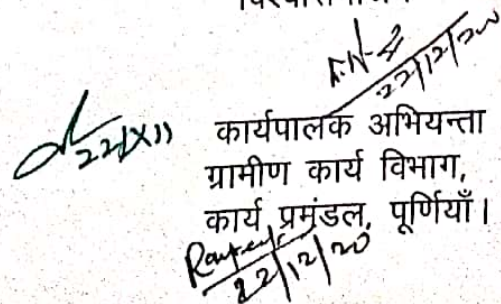 F.N-4
22/12/20
22/XII
कार्यपालक अभियन्ता
ग्रामीण कार्य विभाग,
कार्य प्रमंडल, पूर्णियाँ।
22/12/20